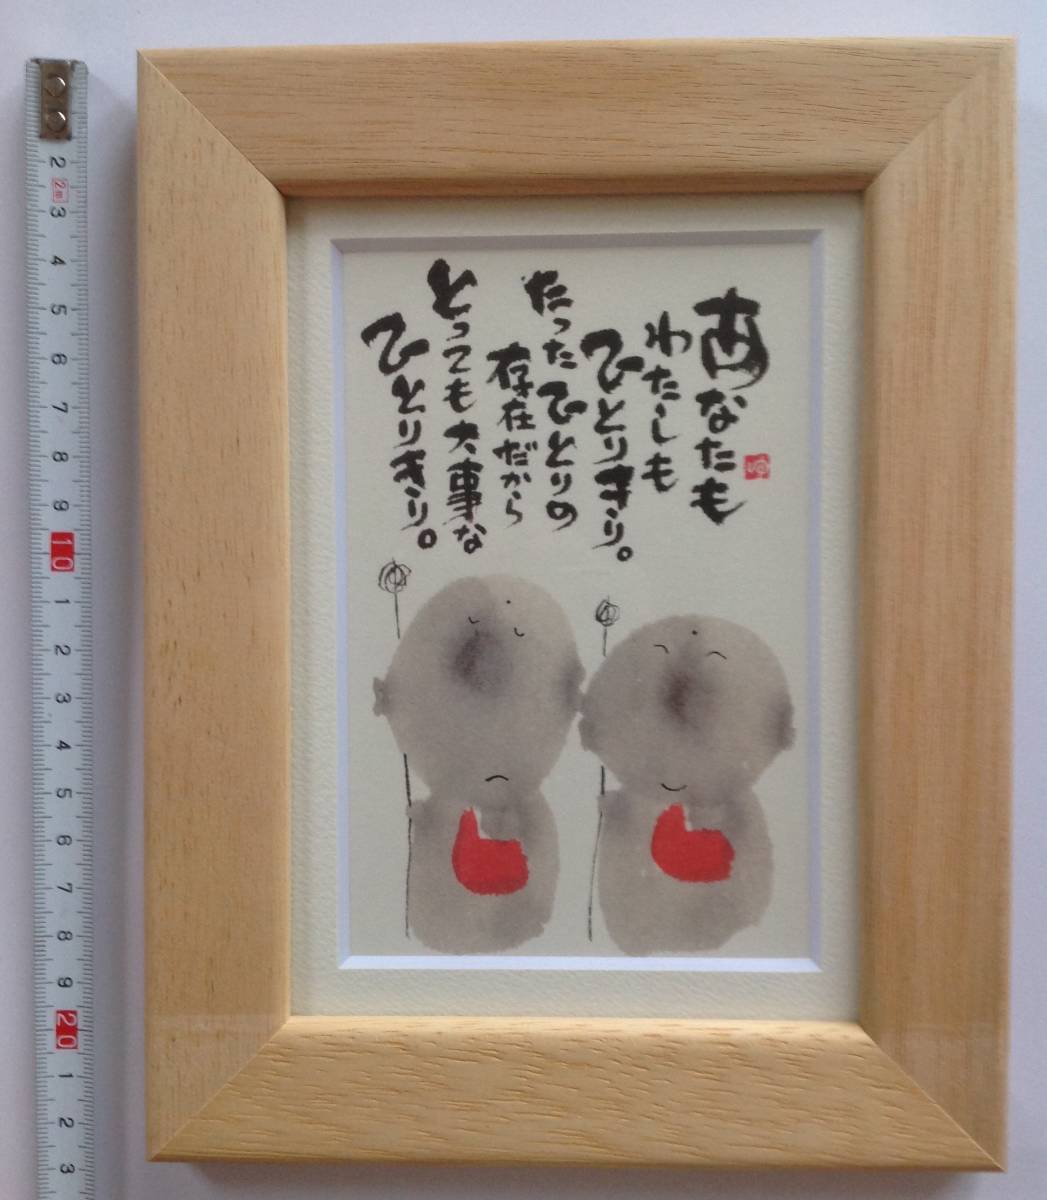 あなたも
わたしも
ひとりきり。
たったひとりの
存在だから
とっても大事な
ひとりきり。
2
2m
3
4
5
6
7
8
9
10
1
2
3
4
5
6
7
8
9
20
1
2
3